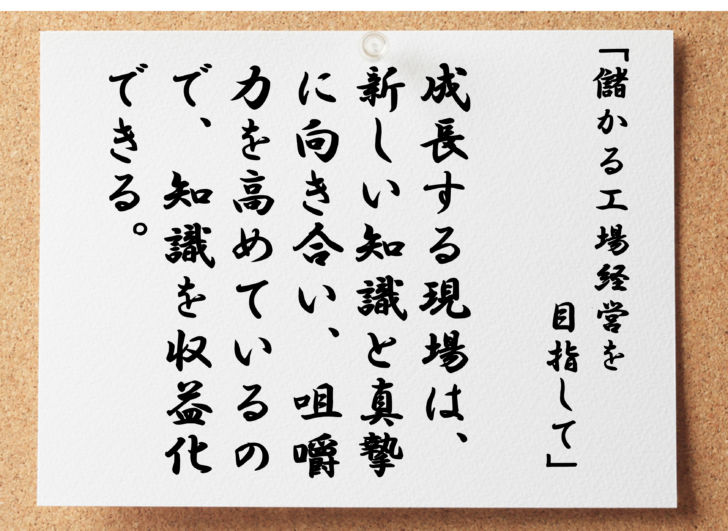 「儲かる工場経営を
目指して」
成長する現場は、
新しい知識と真摯
に向き合い、咀嚼
力を高めているの
で、知識を収益化
できる。